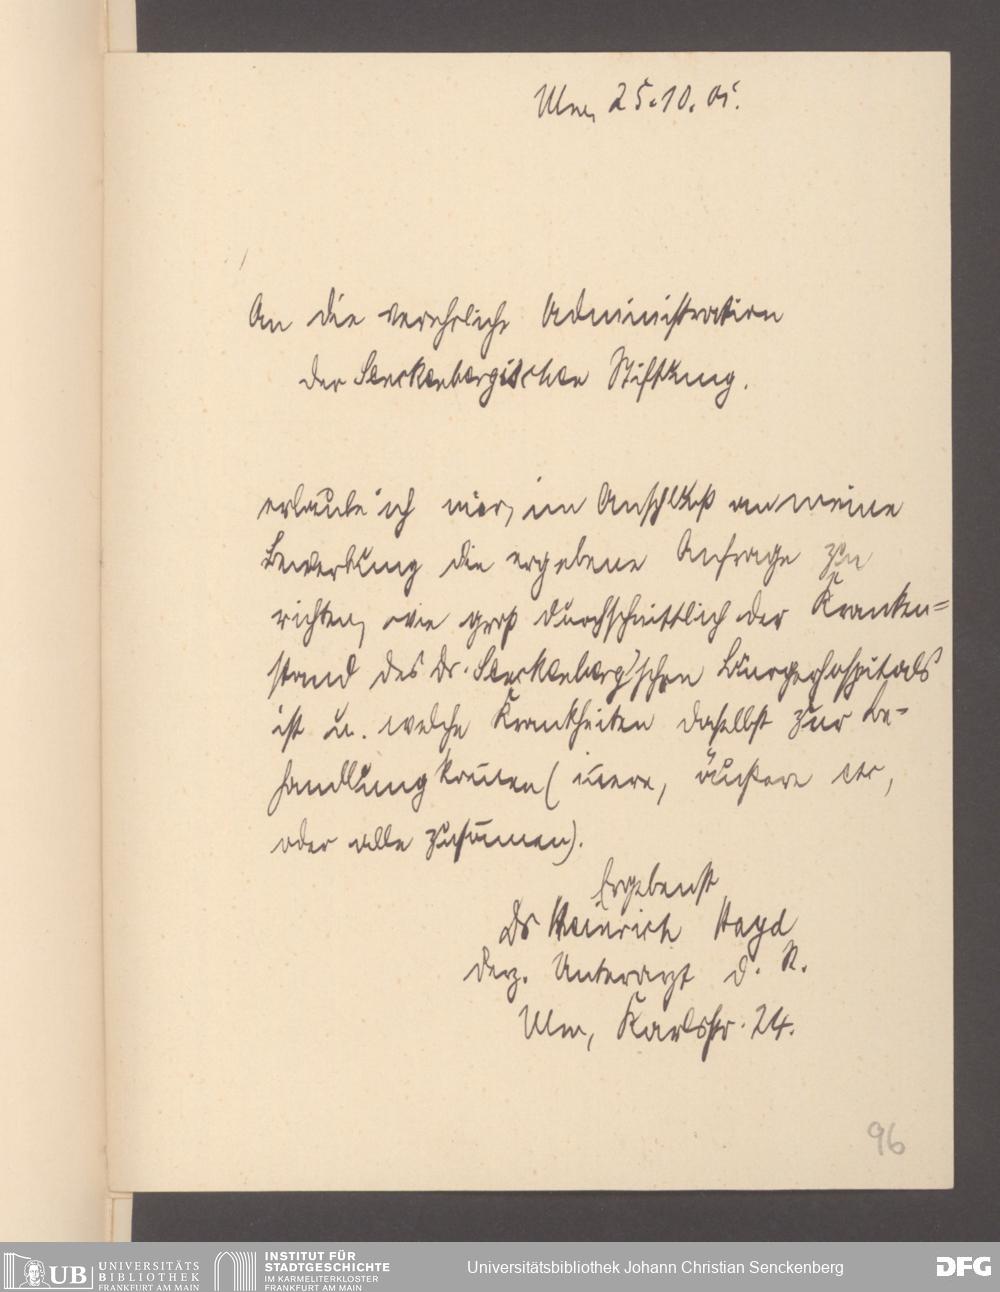 Ulm, 25.10.05.
An die verehrliche Administration
der Senckenbergischen Stiftung.
erlaube ich mir, im Anschluß an meine
Bewerbung die ergebene Anfrage zu
richten, wie groß durchschnittlich der Kranken=
stand des Dr. Senckenberg'schen Bürgerhospitals
ist u. welche Krankheiten daselbst zur Be-
handlung kom̅en (in̅ere, äußere etc,
oder alle zusam̅en).
Ergebenst
Dr Heinrich Hayd
derz. Unterarzt d. R.
Ulm, Karlsstr. 24.
96
UB UNIVERSITÄTS
BIBLIOTHEK
FRANKFURT AM MAIN
INSTITUT FÜR
STADTGESCHICHTE
IM KARMELITERKLOSTER
FRANKFURT AM MAIN
Universitätsbibliothek Johann Christian Senckenberg
DFG